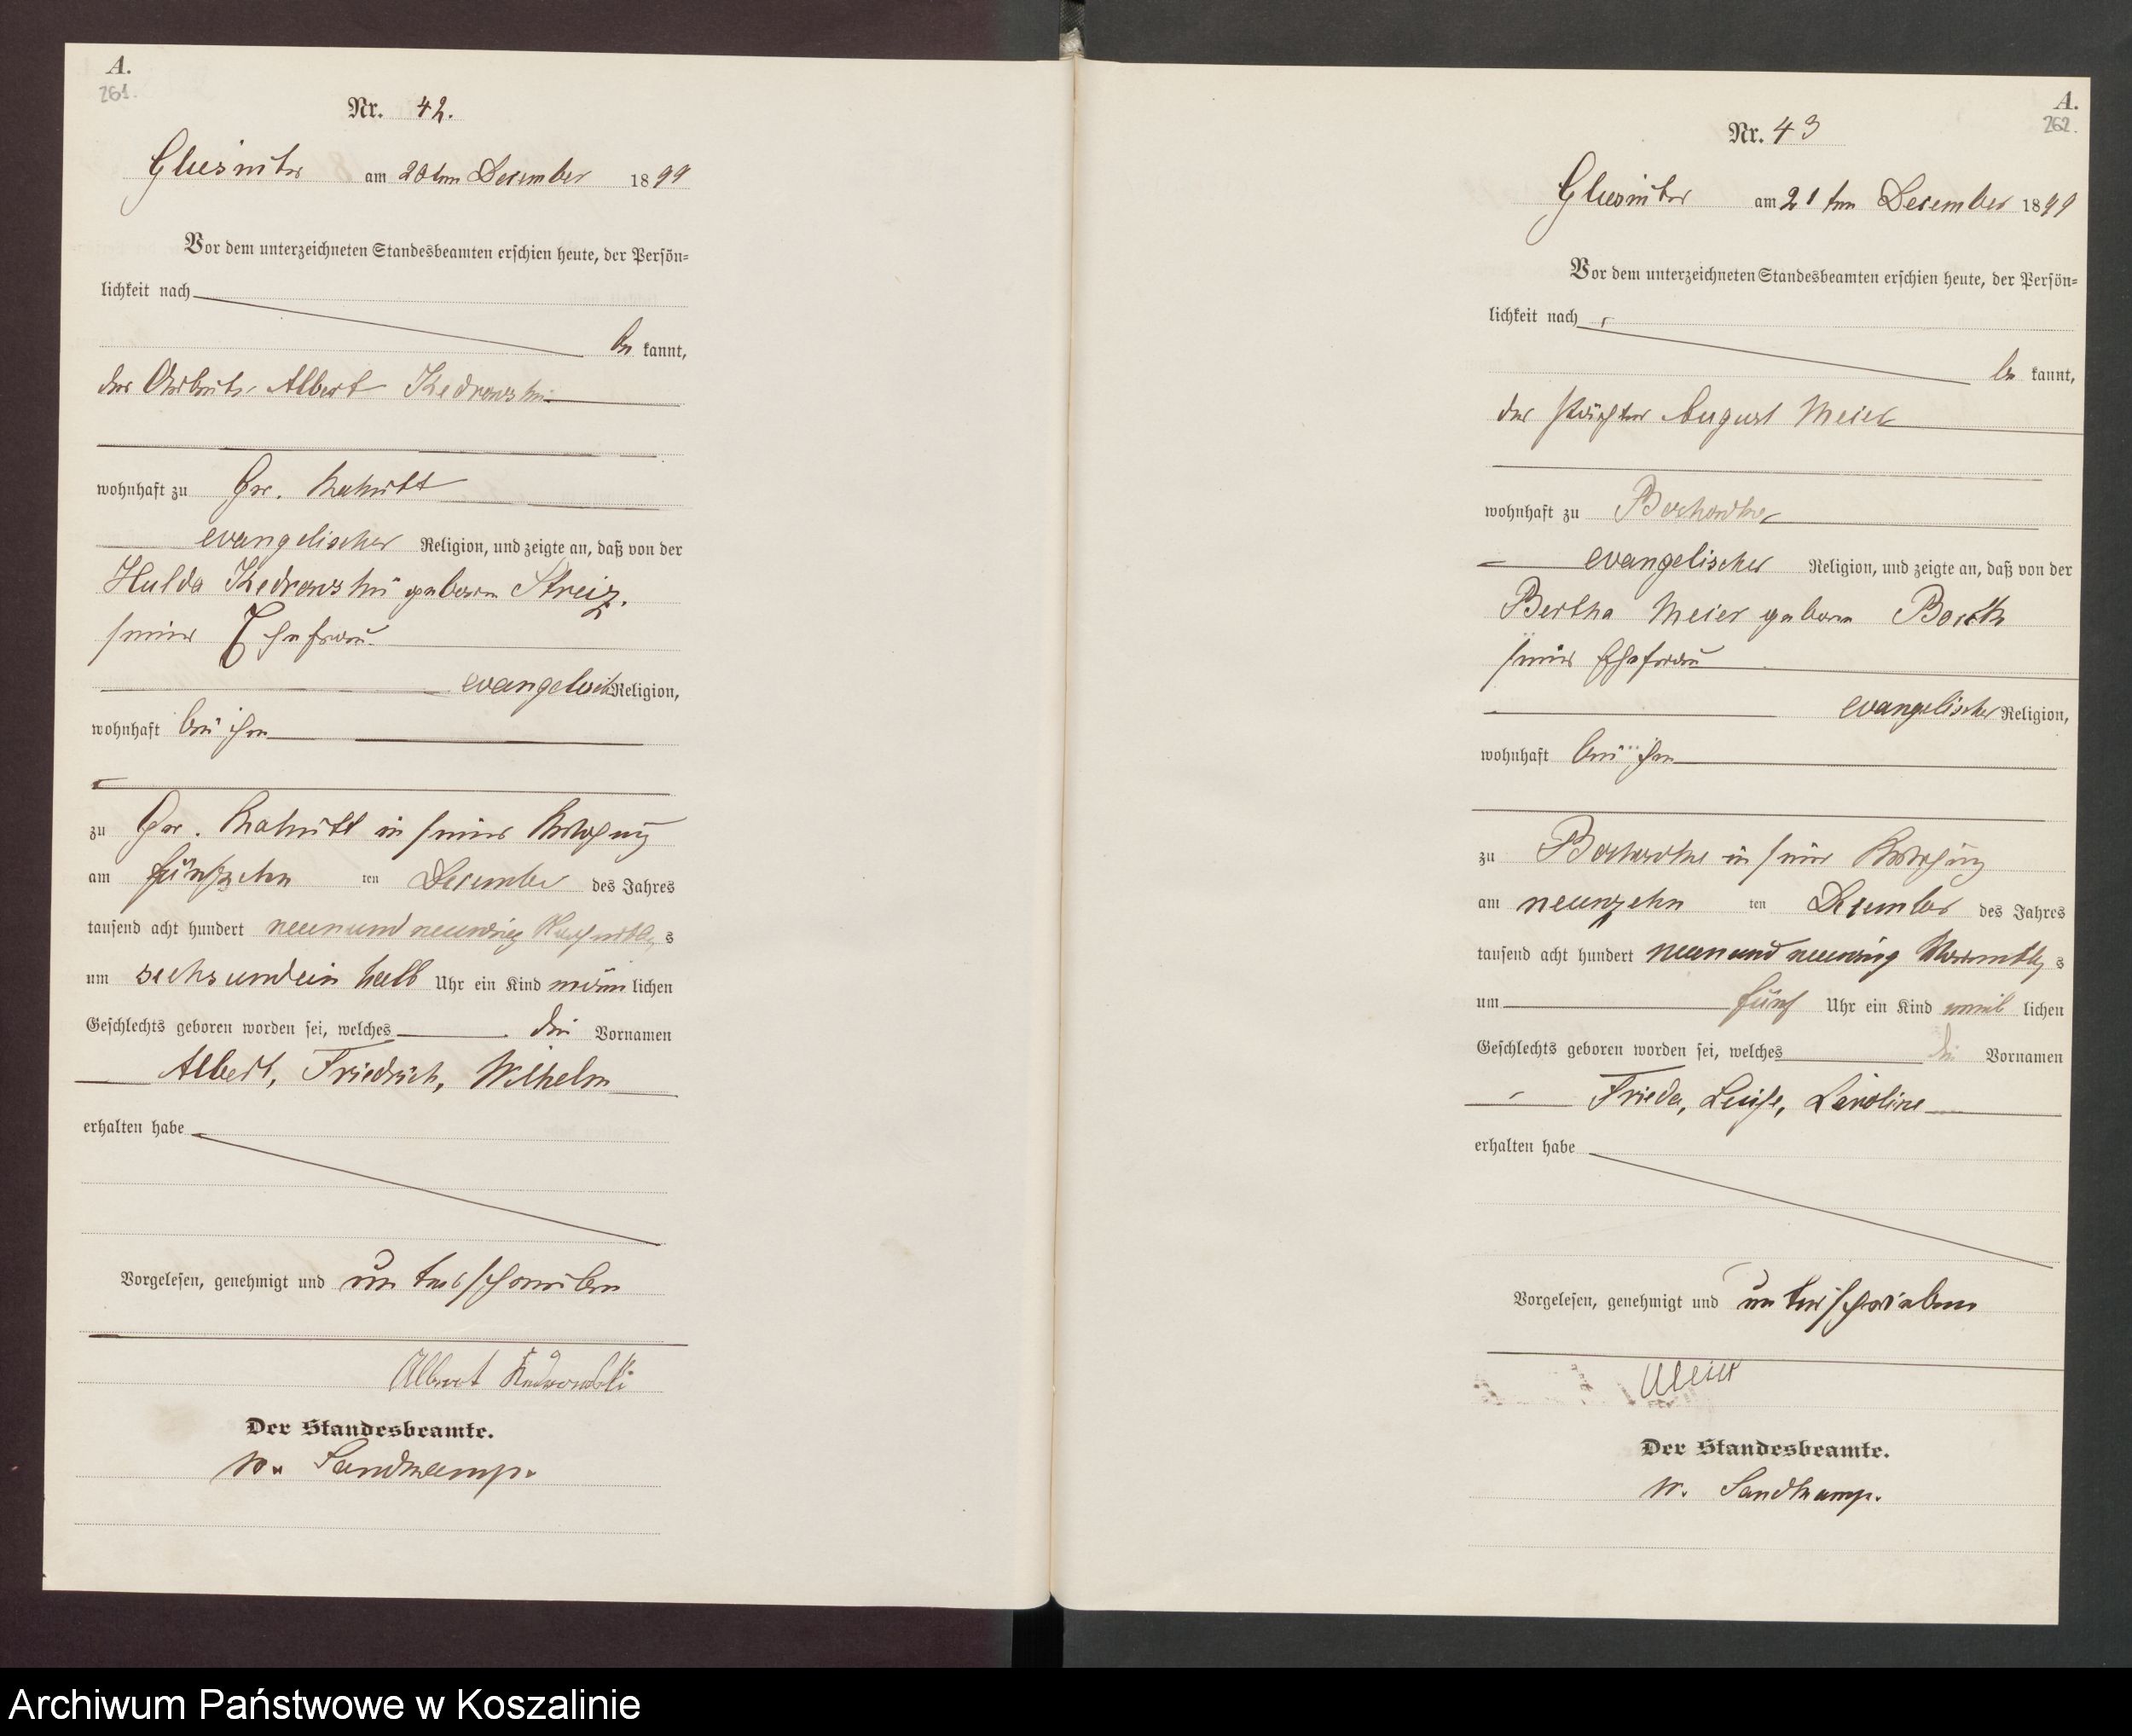 A.
261.
Nr. 42.
am 20ten December 1899
Vor dem unterzeichneten Standesbeamten erschien heute, der Persön-
lichkeit nach
be kannt,
der Arbeiter Albert Kedrowski
wohnhaft zu Gr.
evangelischer Religion, und zeigte an, daß von der
Hulda Kedrowski geboren Streiz,
seiner Ehefrau
evangelisch Religion,
wohnhaft bei ihm
zu Gr. in seiner Wohnung
am fünfzehn ten December des Jahres
tausend acht hundert neunundneunzig Nachmittags
um sechsundein halb Uhr ein Kind männlichen
Geschlechts geboren worden sei, welches die Vornamen
Albert, Friedrich, Wilhelm
erhalten habe
Vorgelesen, genehmigt und unterschrieben
Albert Kedrowski
Der Standesbeamte.
W. Sandkamp.
A.
262.
Nr. 43
am 21ten December 1899
Vor dem unterzeichneten Standesbeamten erschien heute, der Persön-
lichkeit nach
be kannt,
der Pächter August Meier
wohnhaft zu
evangelischer Religion, und zeigte an, daß von der
Bertha Meier geboren
seiner Ehefrau
evangelischer Religion,
wohnhaft bei ihm
zu in seiner Wohnung
am neunzehn ten December des Jahres
tausend acht hundert neunundneunzig Vormittags
um fünf Uhr ein Kind weib lichen
Geschlechts geboren worden sei, welches die Vornamen
Frieda, Luise, Karoline
erhalten habe
Vorgelesen, genehmigt und unterschrieben
Meier
Der Standesbeamte.
W. Sandkamp.
Archiwum Państwowe w Koszalinie